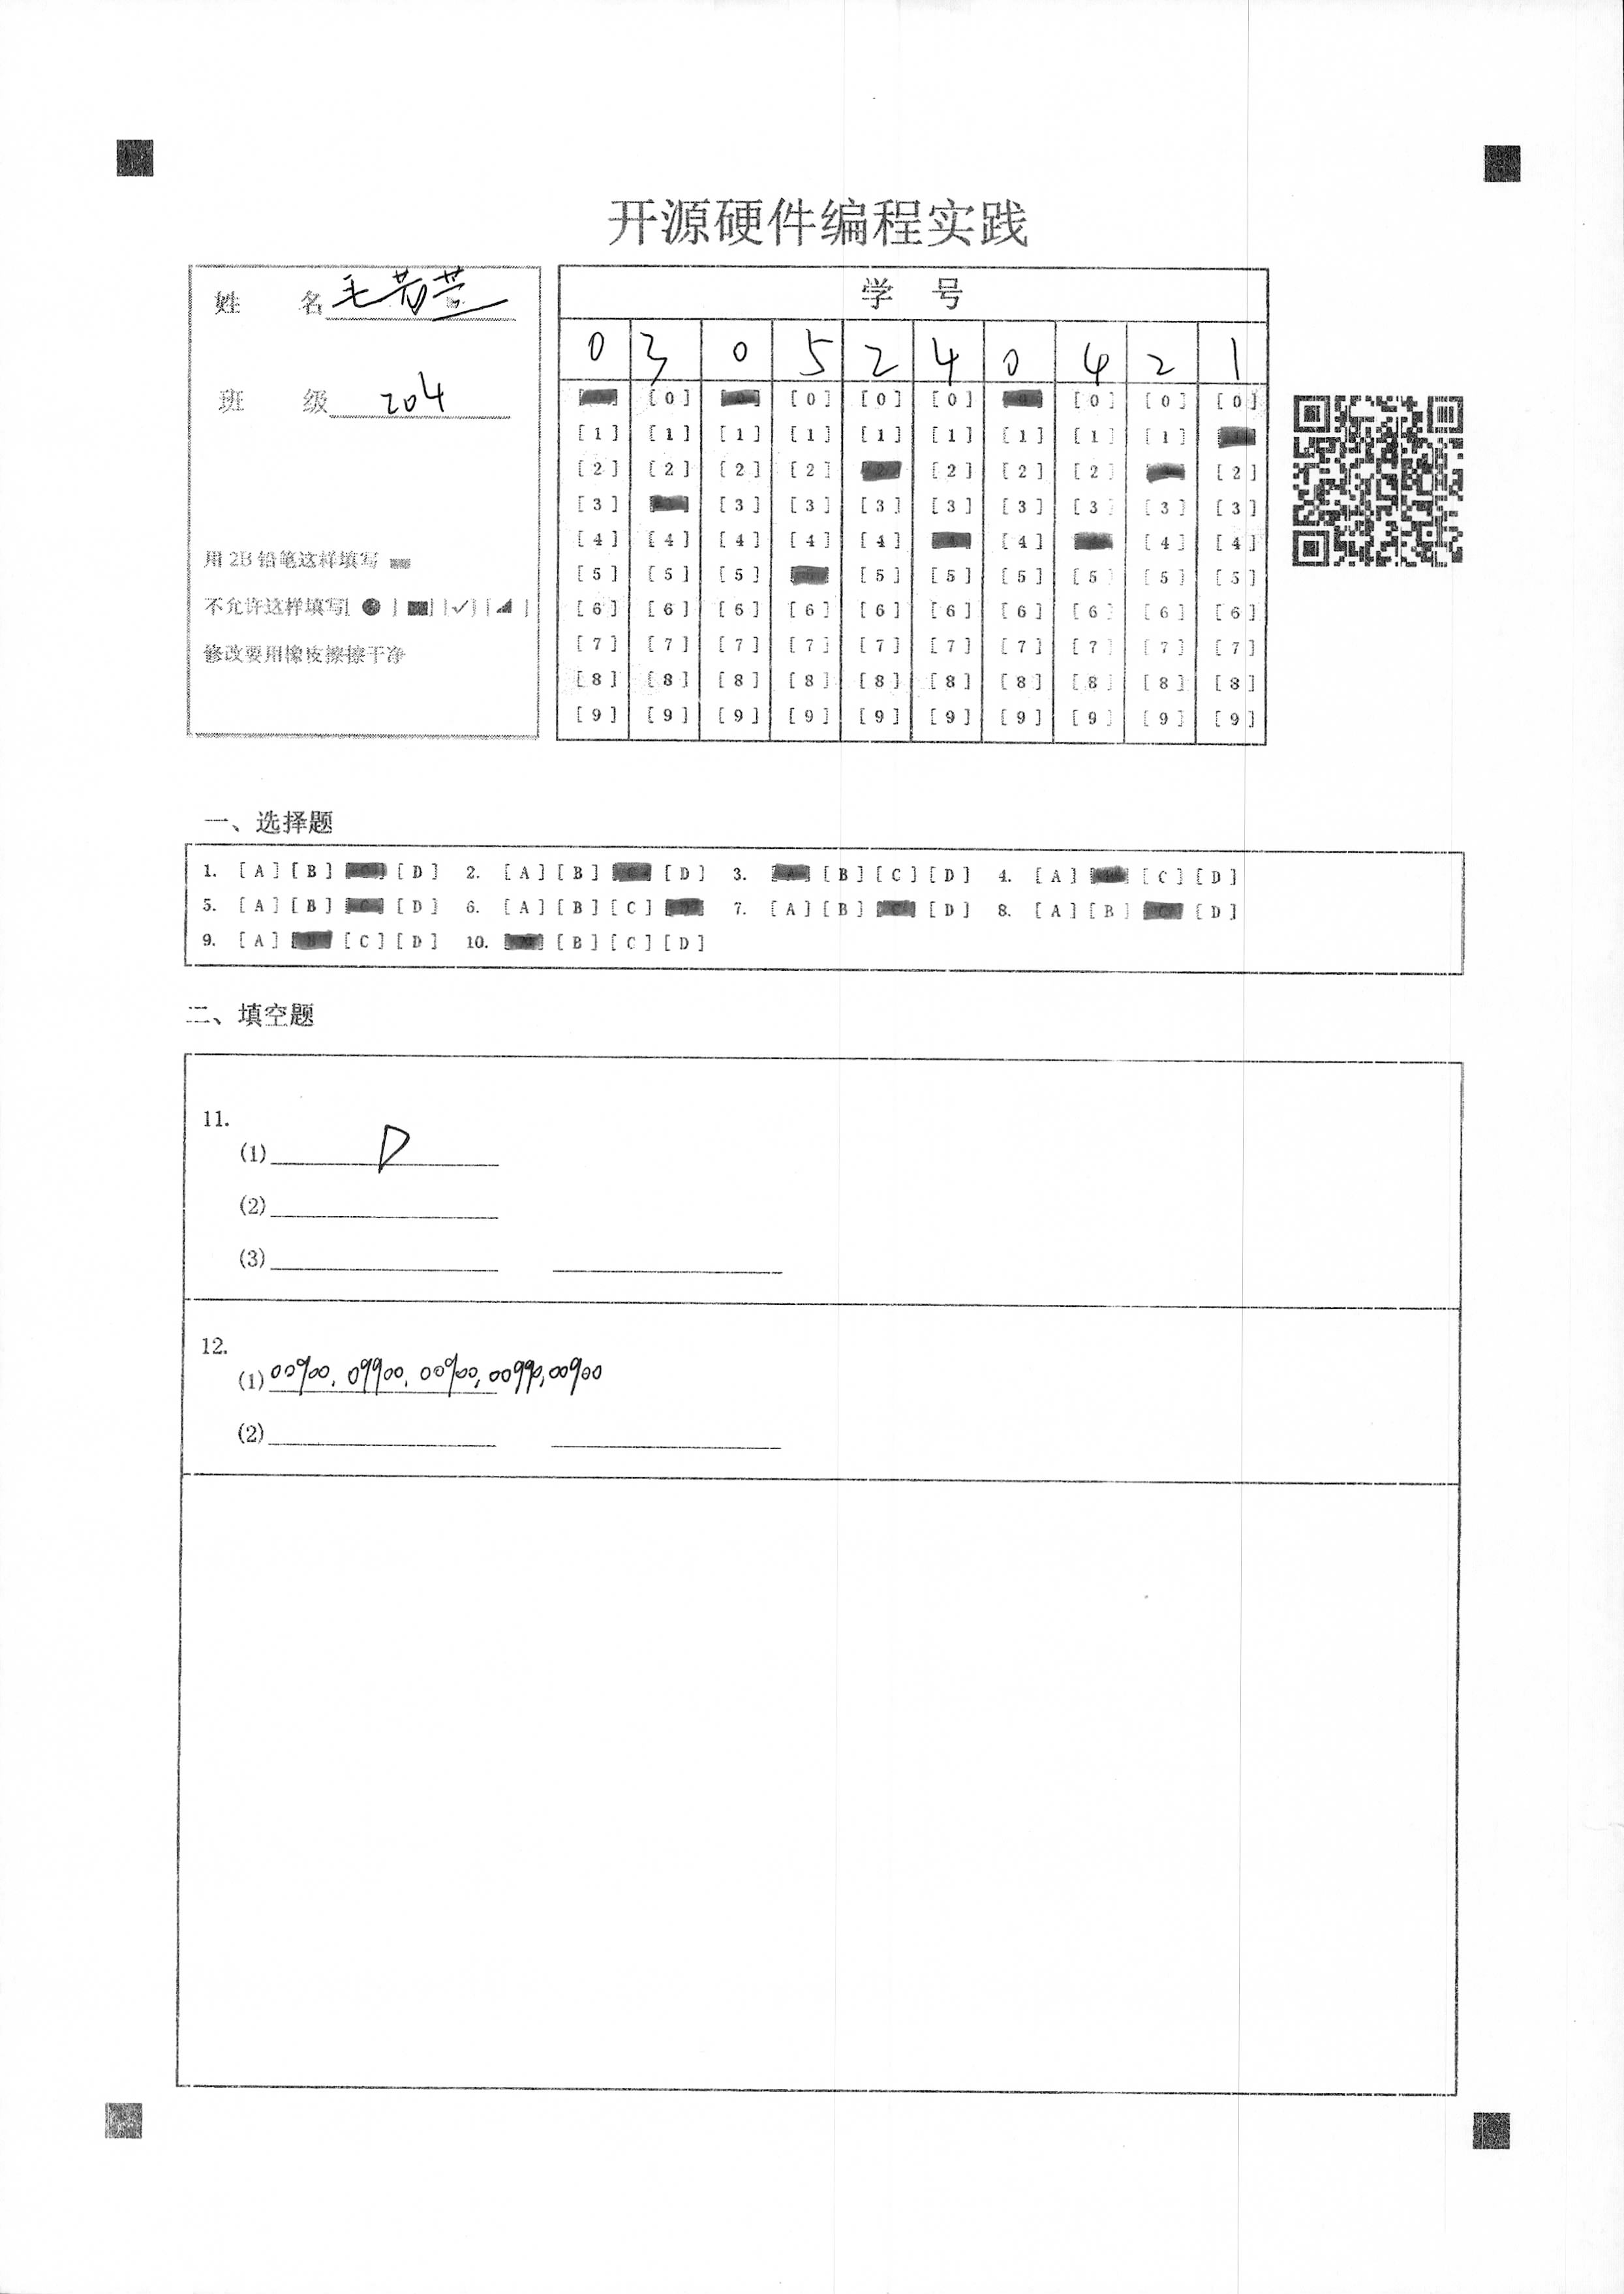 开源硬件编程实践
姓 名 毛芳芸
班 级 204
用 2B 铅笔这样填写
不允许这样填写[ ● ] [■] [✓] [◢ ]
修改要用橡皮擦擦干净
学 号
0 3 0 5 2 4 0 4 2 1
[0] [0] [0] [0] [0] [0] [0]
[1] [1] [1] [1] [1] [1] [1] [1] [1]
[2] [2] [2] [2] [2] [2] [2] [2]
[3] [3] [3] [3] [3] [3] [3] [3] [3]
[4] [4] [4] [4] [4] [4] [4] [4]
[5] [5] [5] [5] [5] [5] [5] [5] [5]
[6] [6] [6] [6] [6] [6] [6] [6] [6] [6]
[7] [7] [7] [7] [7] [7] [7] [7] [7] [7]
[8] [8] [8] [8] [8] [8] [8] [8] [8] [8]
[9] [9] [9] [9] [9] [9] [9] [9] [9] [9]
一、选择题
1. [A] [B] [C] [D] 2. [A] [B] [C] [D] 3. [A] [B] [C] [D] 4. [A] [B] [C] [D]
5. [A] [B] [C] [D] 6. [A] [B] [C] [D] 7. [A] [B] [C] [D] 8. [A] [B] [C] [D]
9. [A] [B] [C] [D] 10. [A] [B] [C] [D]
二、填空题
11.
(1) D
(2)
(3)
12.
(1) 00900, 09900, 00900, 00990, 00900
(2)